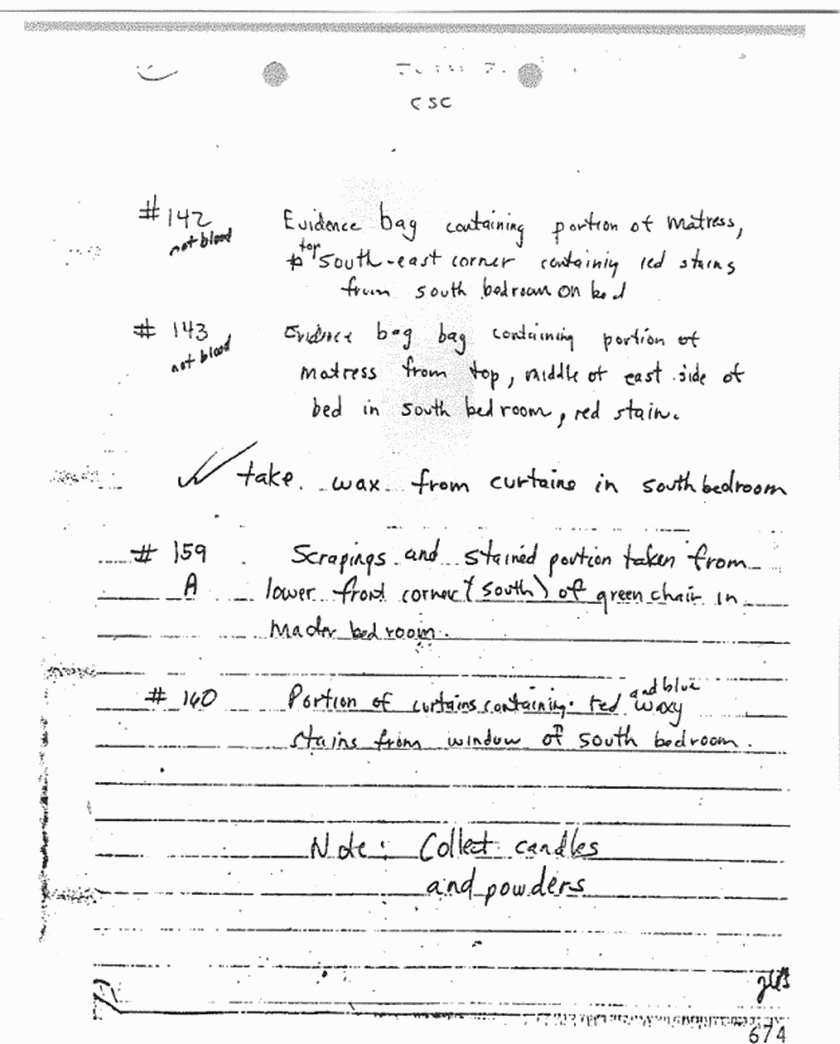 CSC
# 142 Evidence bag containing portion of matress,
not blood
top
south-east corner containing red stains
from south bedroom on bed
# 143 Evidence bag bag containing portion of
not blood
matress from top, middle of east side of
bed in south bedroom, red stain.
✓ take wax from curtains in south bedroom
# 159 Scrapings and stained portion taken from
A lower front corner (south) of green chair in
Master bedroom.
and blue
# 160 Portion of curtains containing red waxy
stains from window of south bedroom.
Note: Collect candles
and powders
674